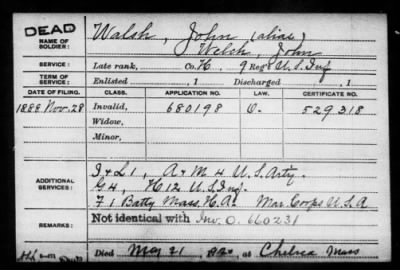 DEAD
NAME OF SOLDIER: Walsh, John (alias)
Welsh, John
SERVICE: Late rank, Co. H, 9 Reg't U.S. Inf
TERM OF SERVICE: Enlisted , 1 Discharged , 1
DATE OF FILING. CLASS. APPLICATION NO. LAW. CERTIFICATE NO.
1888 Nov. 28 Invalid, 680198 O. 529318
Widow,
Minor,
ADDITIONAL SERVICES: I + L 1, A + M 4 U.S. Arty.
G 4, H 12 U.S. Inf.
F 1 Batty Mass. H.A. Mar. Corps U.S.A
REMARKS: Not identical with Inv. O. 660231
Died May 21, at Chelsea Mass